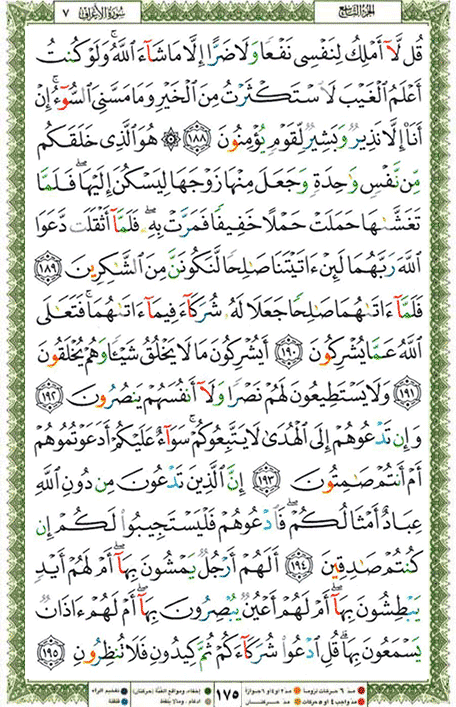 الجزء التاسع
سورة الأعراف
٧
قُل لَّآ أَمْلِكُ لِنَفْسِى نَفْعًا وَلَا ضَرًّا إِلَّا مَا شَآءَ ٱللَّهُ ۚ وَلَوْ كُنتُ
أَعْلَمُ ٱلْغَيْبَ لَٱسْتَكْثَرْتُ مِنَ ٱلْخَيْرِ وَمَا مَسَّنِىَ ٱلسُّوٓءُ ۚ إِنْ
أَنَا۠ إِلَّا نَذِيرٌ وَبَشِيرٌ لِّقَوْمٍ يُؤْمِنُونَ ١٨٨ ۞ هُوَ ٱلَّذِى خَلَقَكُم
مِّن نَّفْسٍ وَٰحِدَةٍ وَجَعَلَ مِنْهَا زَوْجَهَا لِيَسْكُنَ إِلَيْهَا ۖ فَلَمَّا
تَغَشَّىٰهَا حَمَلَتْ حَمْلًا خَفِيفًا فَمَرَّتْ بِهِۦ ۖ فَلَمَّآ أَثْقَلَت دَّعَوَا
ٱللَّهَ رَبَّهُمَا لَئِنْ ءَاتَيْتَنَا صَٰلِحًا لَّنَكُونَنَّ مِنَ ٱلشَّٰكِرِينَ ١٨٩
فَلَمَّآ ءَاتَىٰهُمَا صَٰلِحًا جَعَلَا لَهُۥ شُرَكَآءَ فِيمَآ ءَاتَىٰهُمَا ۚ فَتَعَٰلَى
ٱللَّهُ عَمَّا يُشْرِكُونَ ١٩٠ أَيُشْرِكُونَ مَا لَا يَخْلُقُ شَيْـًٔا وَهُمْ يُخْلَقُونَ
١٩١ وَلَا يَسْتَطِيعُونَ لَهُمْ نَصْرًا وَلَآ أَنفُسَهُمْ يَنصُرُونَ ١٩٢
وَإِن تَدْعُوهُمْ إِلَى ٱلْهُدَىٰ لَا يَتَّبِعُوكُمْ ۚ سَوَآءٌ عَلَيْكُمْ أَدَعَوْتُمُوهُمْ
أَمْ أَنتُمْ صَٰمِتُونَ ١٩٣ إِنَّ ٱلَّذِينَ تَدْعُونَ مِن دُونِ ٱللَّهِ
عِبَادٌ أَمْثَالُكُمْ ۖ فَٱدْعُوهُمْ فَلْيَسْتَجِيبُوا۟ لَكُمْ إِن
كُنتُمْ صَٰدِقِينَ ١٩٤ أَلَهُمْ أَرْجُلٌ يَمْشُونَ بِهَآ ۖ أَمْ لَهُمْ أَيْدٍ
يَبْطِشُونَ بِهَآ ۖ أَمْ لَهُمْ أَعْيُنٌ يُبْصِرُونَ بِهَآ ۖ أَمْ لَهُمْ ءَاذَانٌ
يَسْمَعُونَ بِهَا ۗ قُلِ ٱدْعُوا۟ شُرَكَآءَكُمْ ثُمَّ كِيدُونِ فَلَا تُنظِرُونِ ١٩٥
مد ٦ حركات لزوماً مد ٢ أو ٤ أو ٦ جوازاً
مد واجب ٤ أو ٥ حركات مد حركتان
١٧٥
إخفاء، ومواقع الغنة (حركتان) تفخيم الراء
إدغام، وما لا يلفظ قلقلة